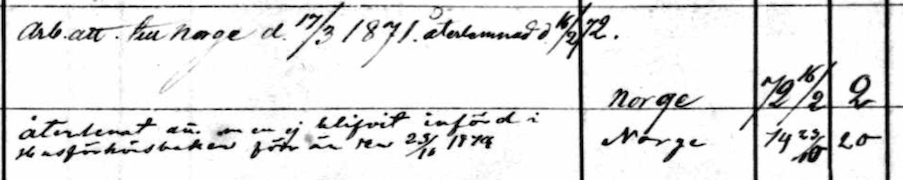 Arb.att. till Norge d. 17/3 1871. återlemnad d 16/2 72.
Norge 72 16/2 2
återlemnat att. men ej blifvit införd i Norge 74 23/10 20
husförhörsboken förr än den 23/10 1874